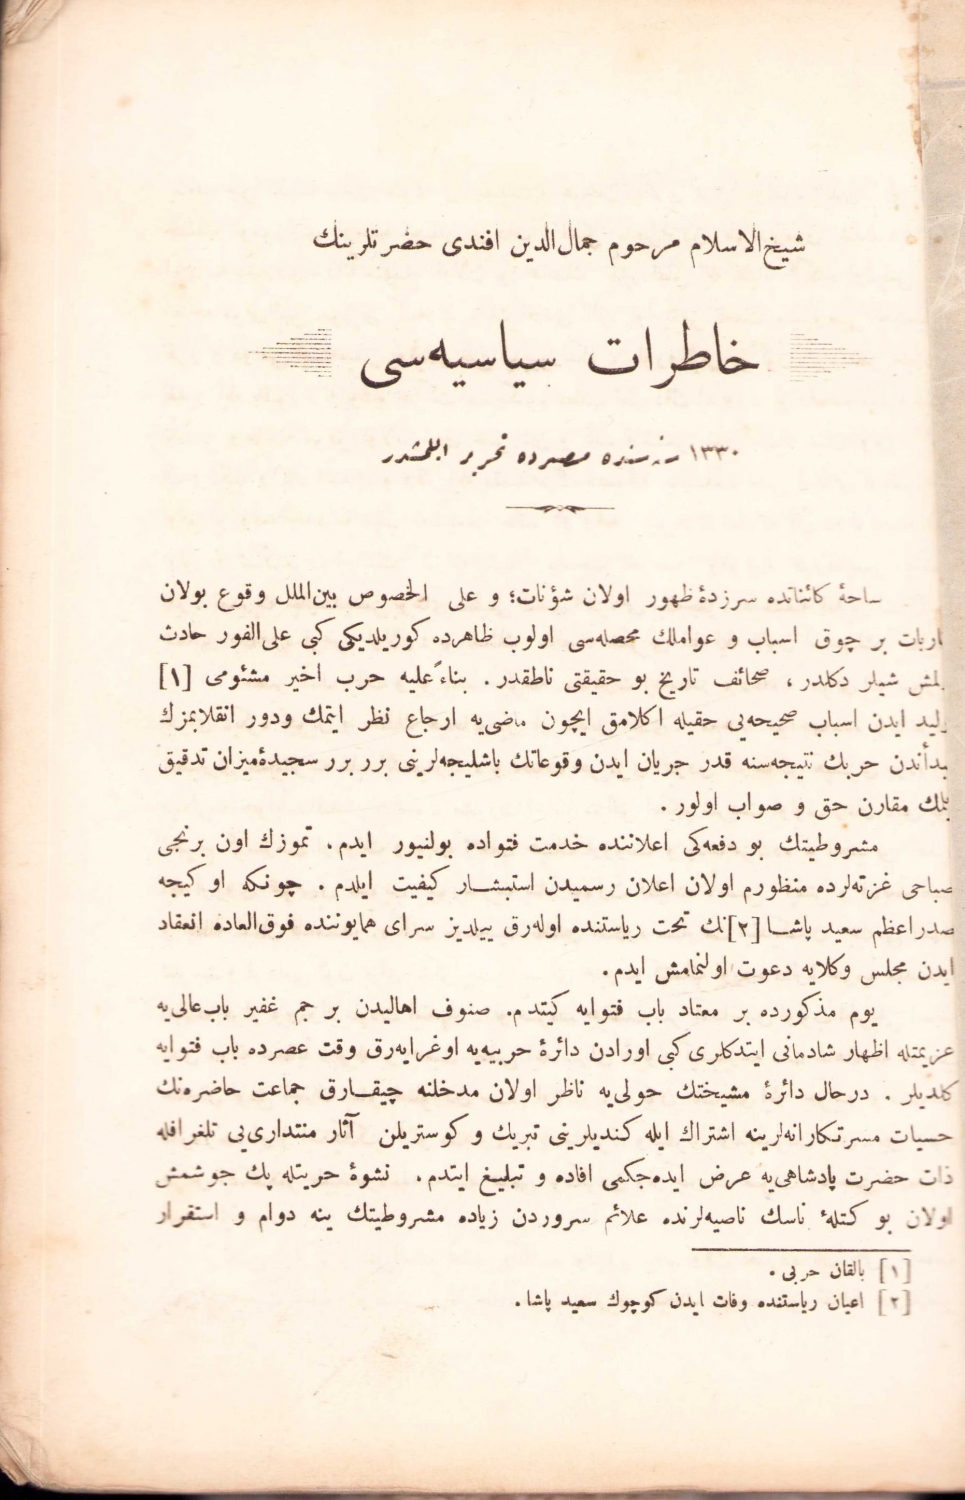 شیخ‌الاسلام مرحوم جمال‌الدین افندی حضرتلرینك
خاطرات سیاسیه‌سی
١٣٣٠ سنه‌سنده مصرده تحریر ایلمشدر
ساحهٔ كائناتده سرزدهٔ ظهور اولان شؤنات؛ و علی الخصوص بین‌الملل وقوع بولان
بر چوق اسباب و عواملك محصله‌سی اولوب ظاهرده كوریلدیكی كبی علی‌الفور حادث
شیلر دكلدر، صحائف تاریخ بو حقیقتی ناطقدر. بناءً علیه حرب اخیر مشئومی [١]
ایدن اسباب صحیحه‌یی حقیله اكلامق ایچون ماضی‌یه ارجاع نظر ایتمك ودور انقلابمزك
حربك نتیجه‌سنه قدر جریان ایدن وقوعاتك باشلیجه‌لرینی برر برر سجیدهٔ میزان تدقیق
مقارن حق و صواب اولور.
مشروطیتك بو دفعه‌كی اعلاننده خدمت فتواده بولنیور ایدم. تموزك اون برنجی
صباحی غزته‌لرده منظورم اولان اعلان رسمیدن استبشار كیفیت ایلدم. چونكه او كیجه
صدراعظم سعید پاشا [٢]نك تحت ریاستنده اوله‌رق ییلدیز سرای همایوننده فوق‌العاده انعقاد
ایدن مجلس وكلایه دعوت اولنمامش ایدم.
یوم مذكورده بر معتاد باب فتوایه كیتدم. صنوف اهالیدن بر جم غفیر باب‌عالی‌یه
عزیمتله اظهار شادمانی ایتدكلری كبی اورادن دائرهٔ حربیه‌یه اوغرایه‌رق وقت عصرده باب فتوایه
كلدیلر. درحال دائرهٔ مشیختك حولی‌یه ناظر اولان مدخلنه چیقارق جماعت حاضره‌نك
حسیات مسرتكارانه‌لرینه اشتراك ایله كندیلرینی تبریك و كوستریلن آثار منتداری‌یی تلغرافله
ذات حضرت پادشاهی‌یه عرض ایده‌جكمی افاده و تبلیغ ایتدم. نشوهٔ حریتله پك جوشمش
اولان بو كتلهٔ ناسك ناصیه‌لرنده علائم سروردن زیاده مشروطیتك ینه دوام و استقرار
[١] بالقان حربی.
[٢] اعیان ریاستنده وفات ایدن كوچوك سعید پاشا.